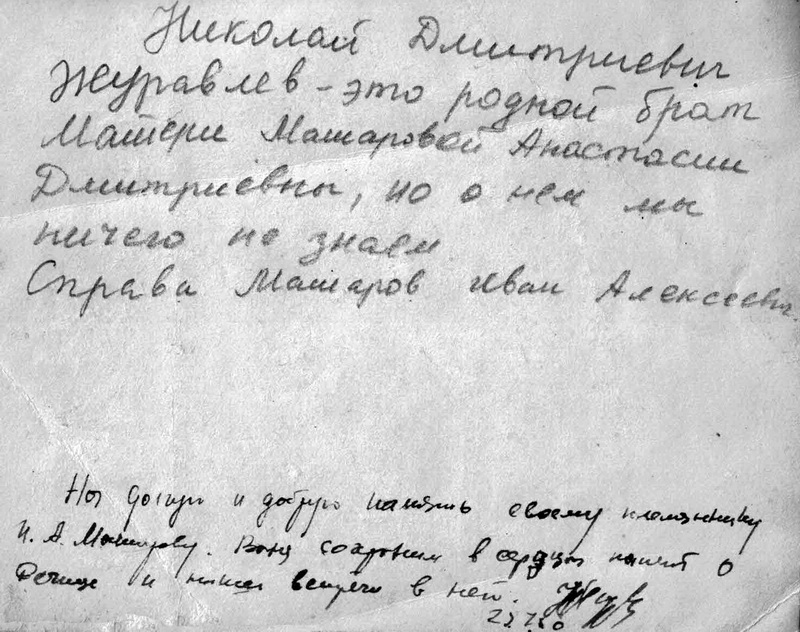 Николай Дмитриевич
Журавлев - это родной брат
Матери Машаровой Анастасии
Дмитриевны, но о нем мы
ничего не знаем
Справа Машаров Иван Алексеевич.
На долгую и добрую память своему племяннику
И. А. Машарову. Ваня сохраним в сердцах память о
Речице и наших встречи в ней.